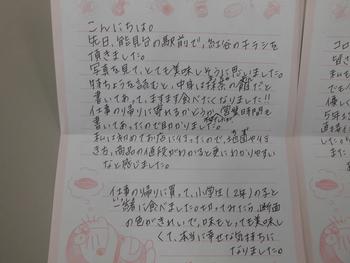 こんにちは。
先日、能見台の駅前で、のチラシを
頂きました。
写真を見て、とても美味しそうに思いました。
特ちょうを読むと、中身は抹茶の餡だと
書いてあって、ますます食べたくなりました!!
仕事の帰りに寄れるかどうか営業時間も
書いてあったので助かりました。
私は初めてお店に行ったので、地図やり
き方、商品の値段がわかると更にわかりやすい
なと感じました。
仕事の帰りに買って、小学生(2年)の子と
一緒に食べました。切ってみたら、断面
の色がきれいで、味もとっても美味し
くて、本当に幸せな気持ちに
なりました。
コロ
皆さ
私
でも
優し